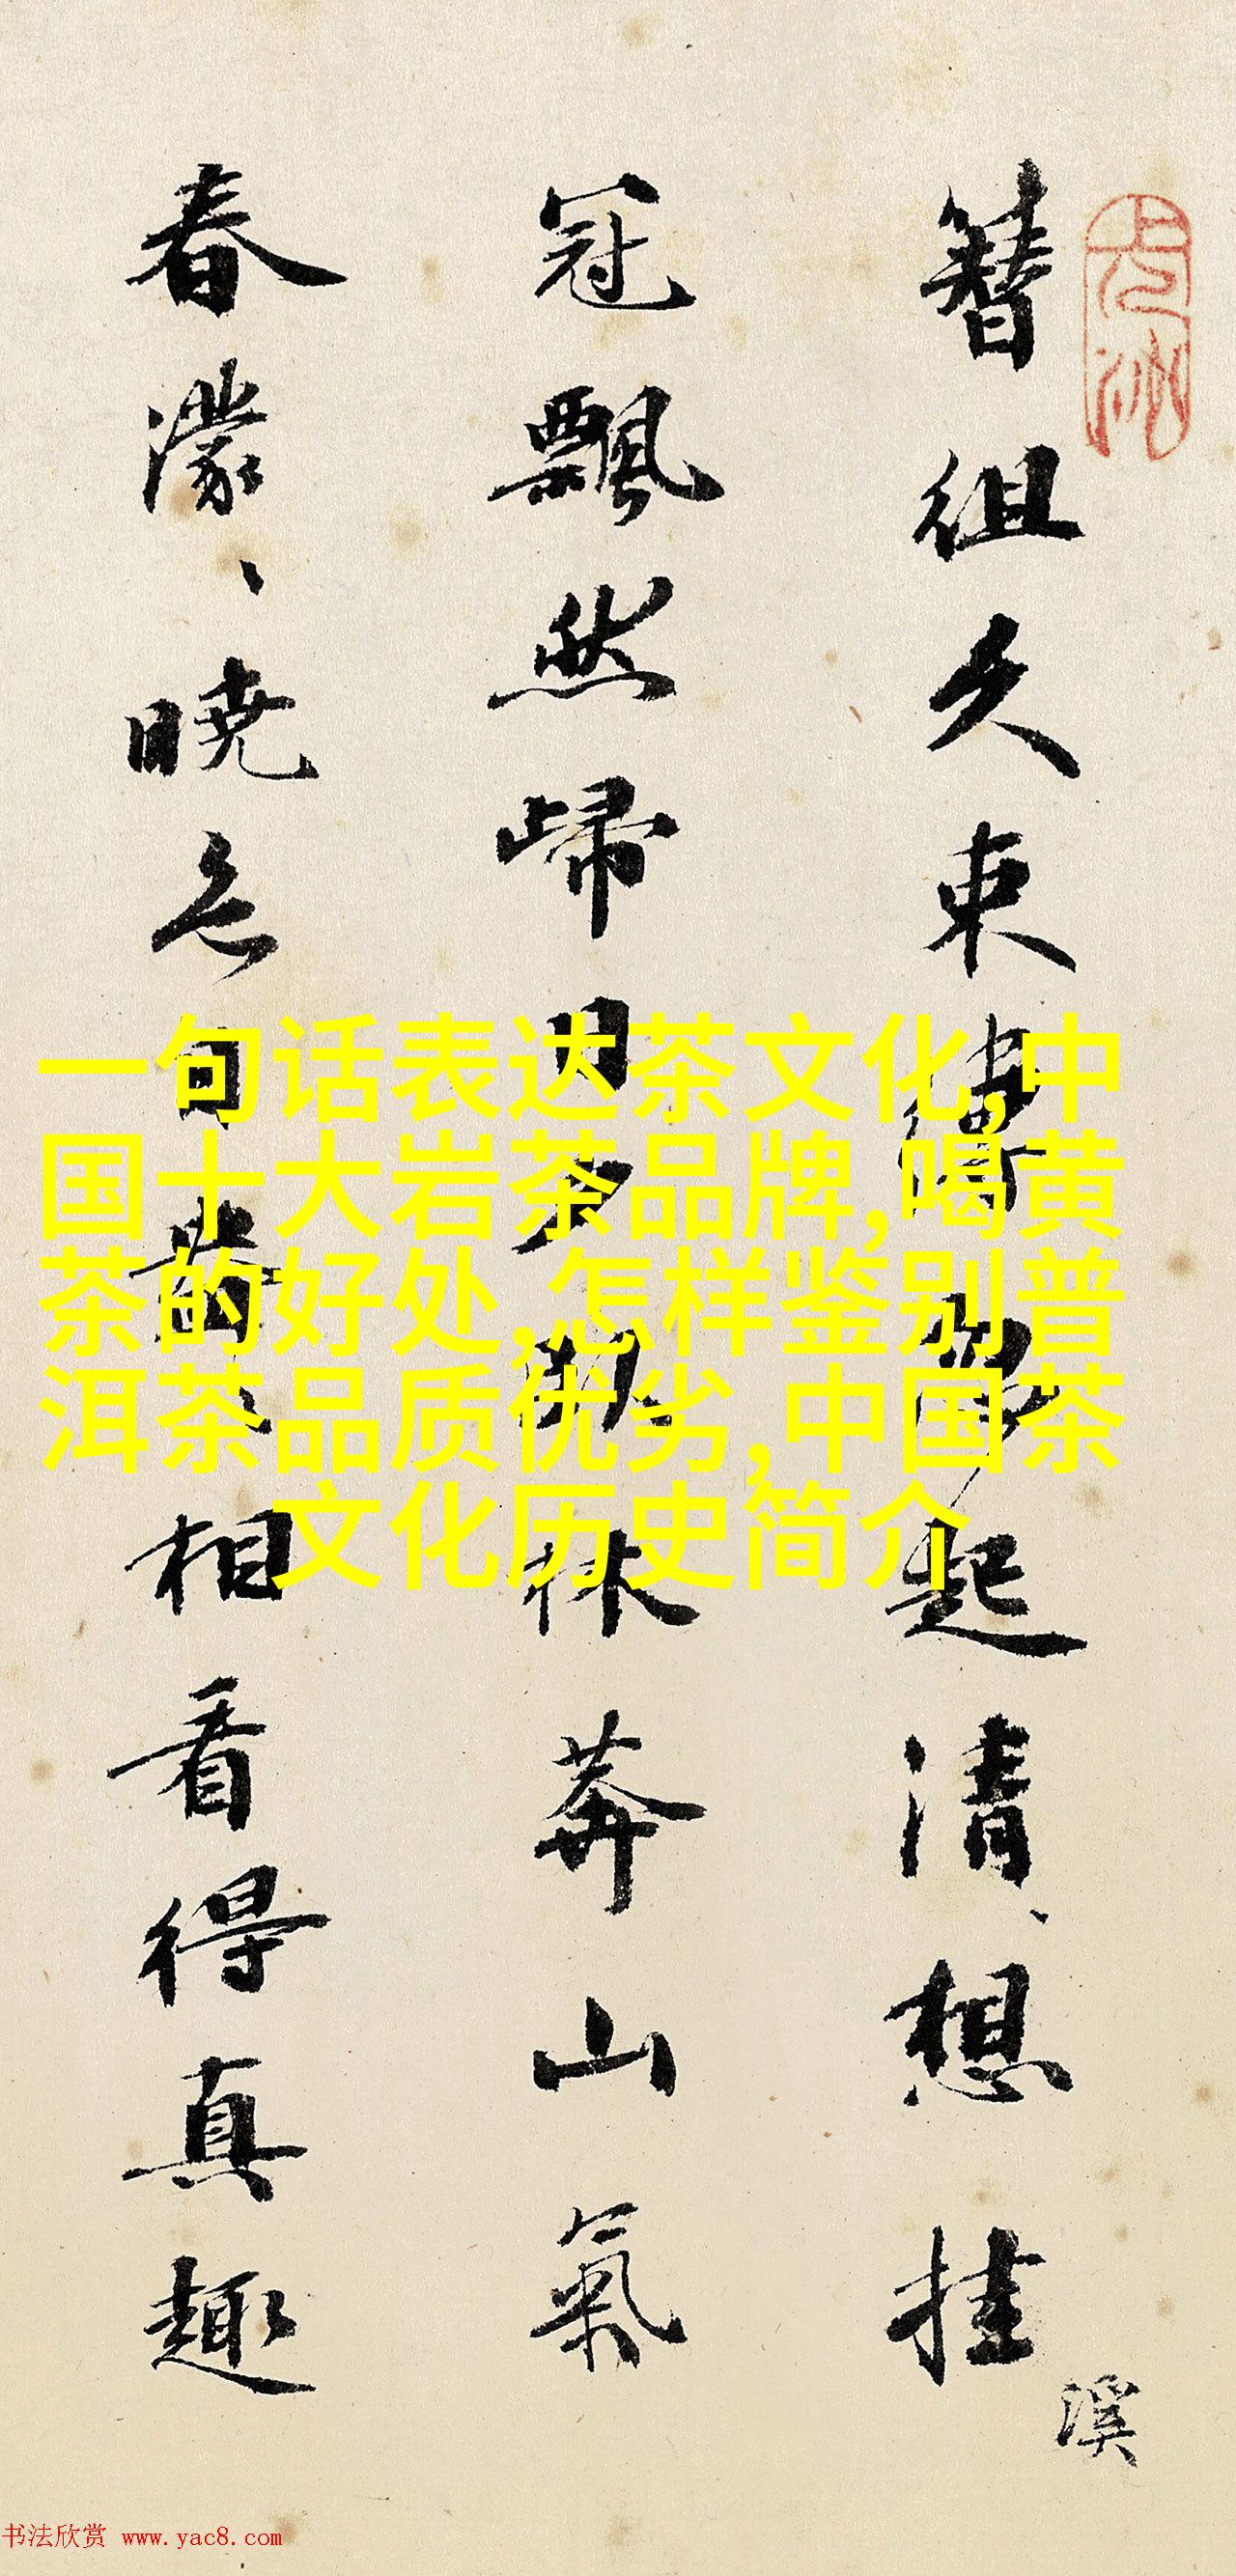 簪组久束缚起清、想挂
溪
冠飘然归日夕休莽山氣
春濛、晓相看得真趣
一句话表达茶文化,中
国十大岩茶品牌,喝黄
茶的好处,怎样鉴别普
洱茶品质优劣,中国茶
文化历史简介
书法欣赏 www.yac8.com